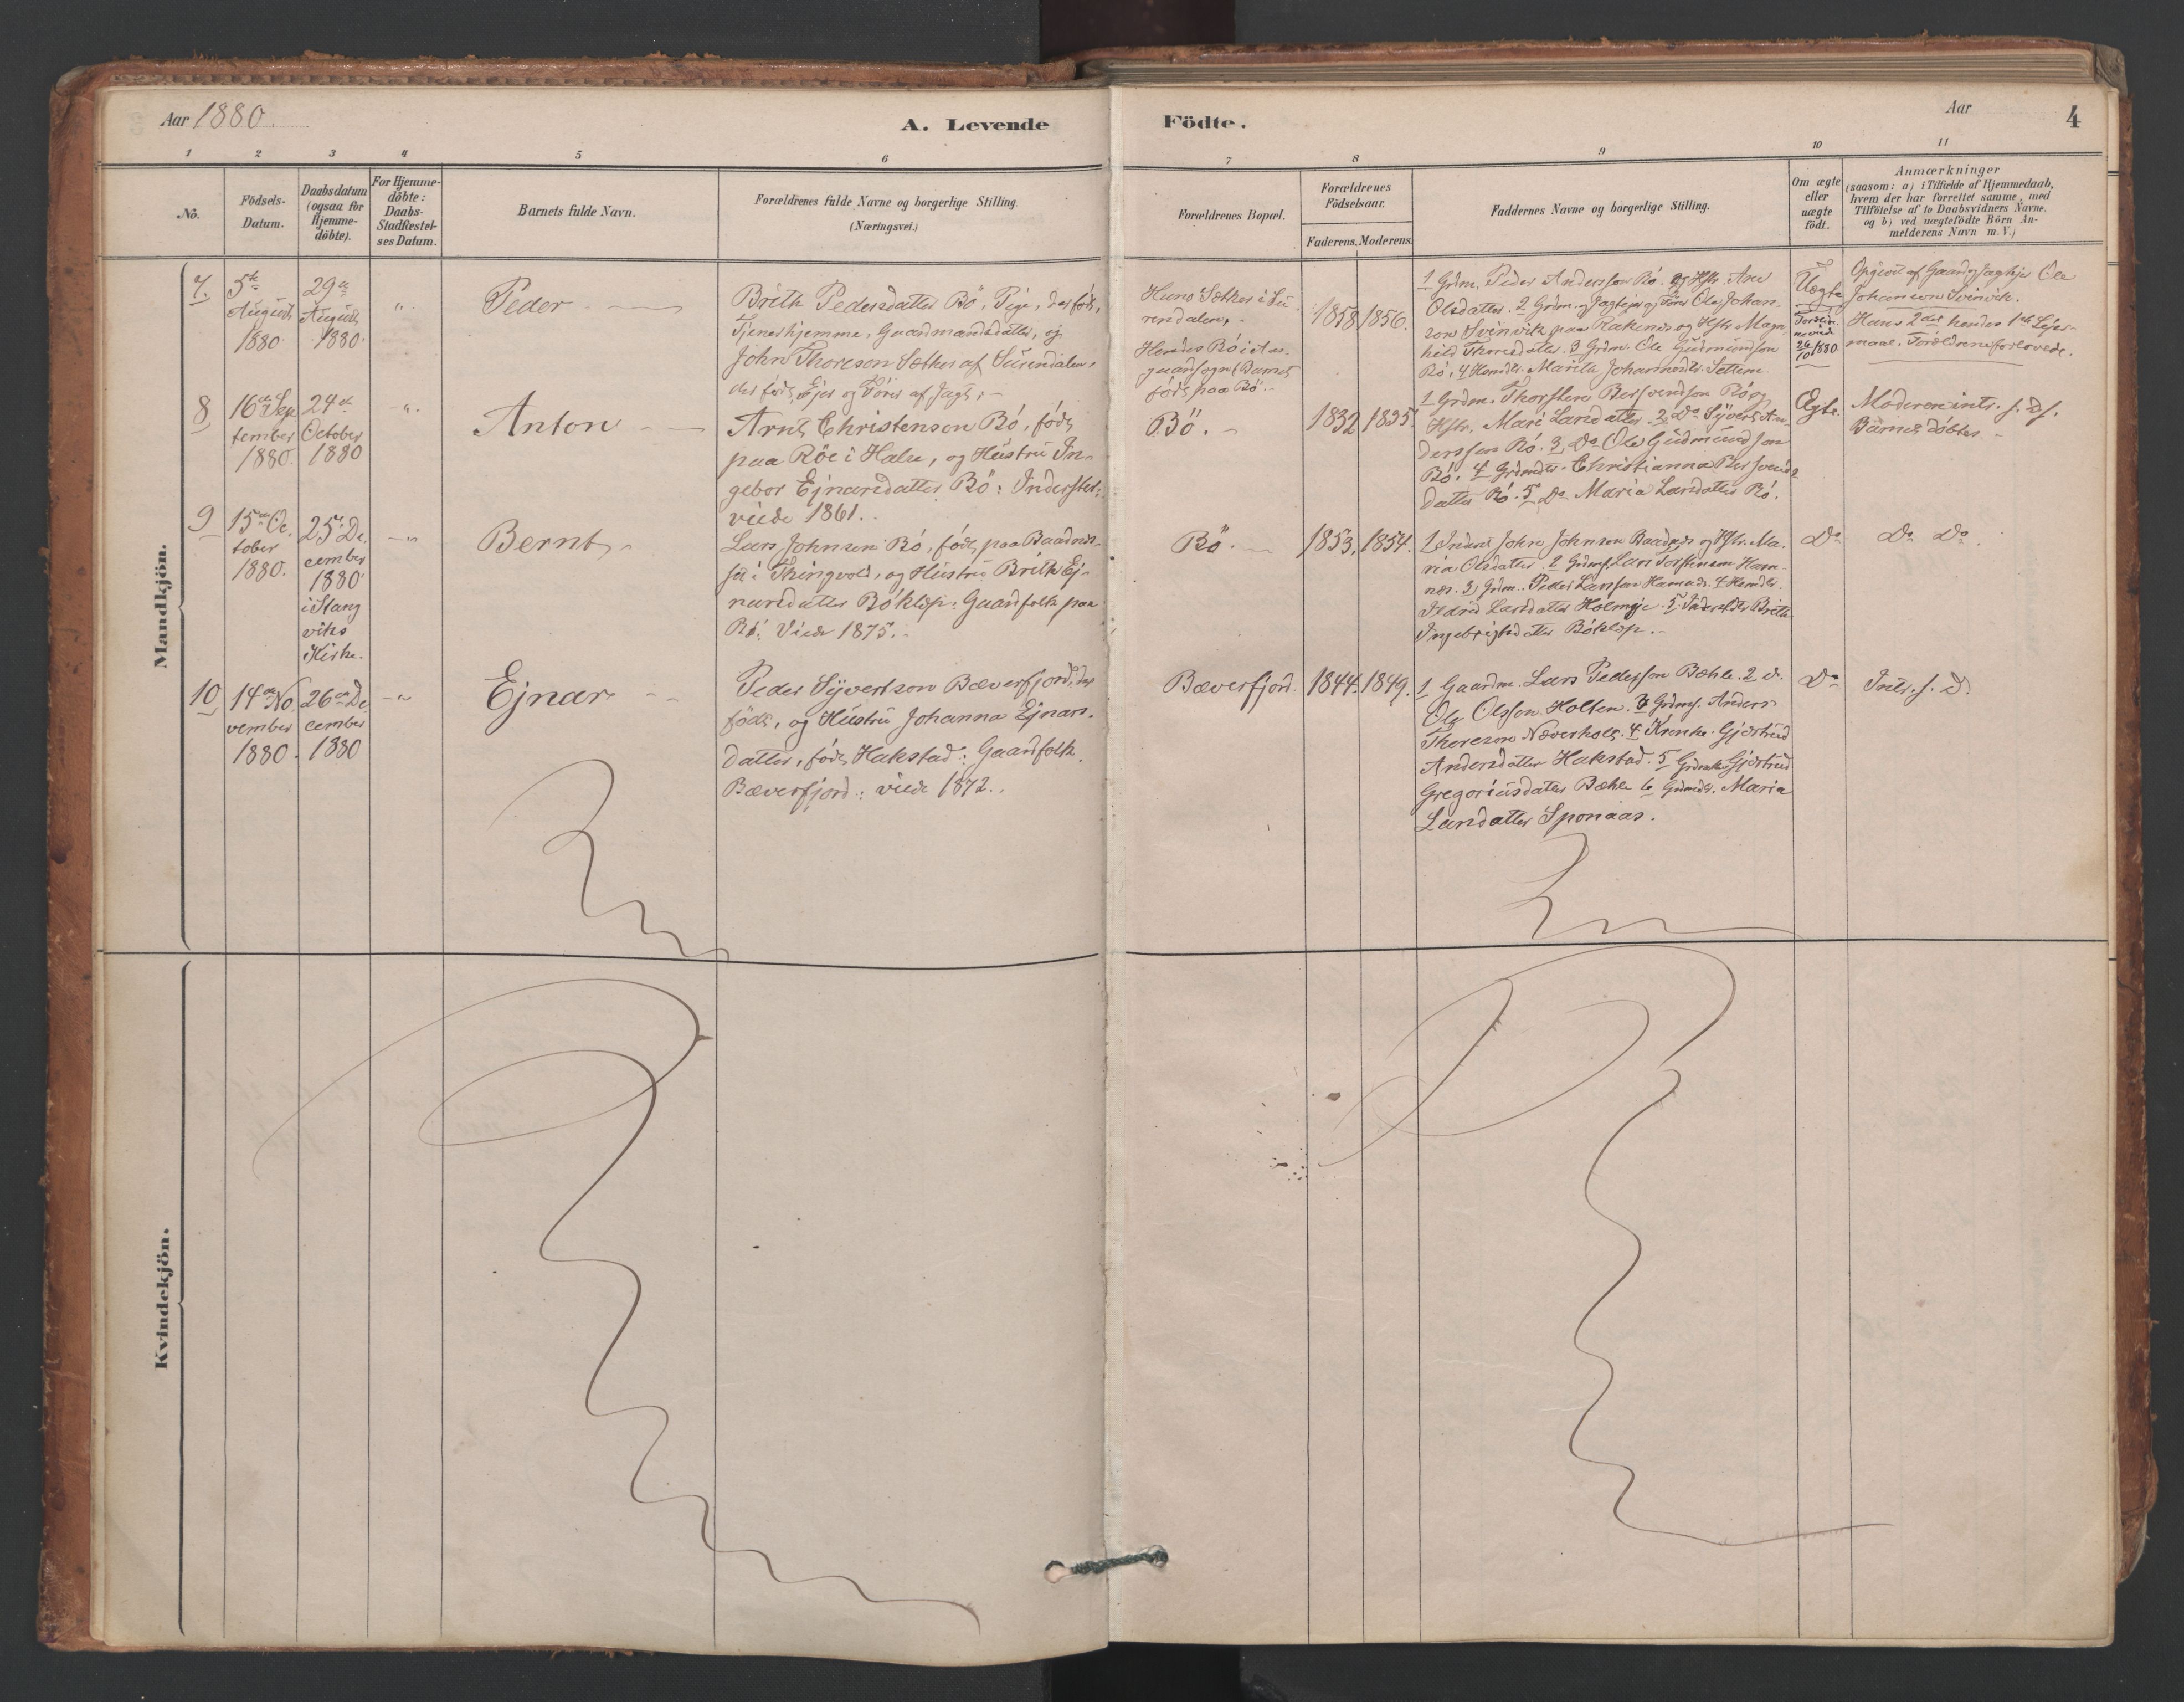 Aar 1880.
A. Levende
Födte.
Aar
4
1
2
3
4
5
6
7
8
9
10
11
No.
Födsels-
Datum.
Daabsdatum
(ogsaa for
Hjemme-
döbte).
For Hjemme-
döbte:
Daabs-
Stadfæstel-
ses Datum.
Barnets fulde Navn.
Forældrenes fulde Navne og borgerlige Stilling.
(Næringsvei.)
Forældrenes Bopæl.
Forældrenes
Födselsaar.
Faderens.
Moderens.
Faddernes Navne og borgerlige Stilling.
Om ægte
eller
uægte
födt.
Anmærkninger
(saasom: a) i Tilfælde af Hjemmedaab,
hvem der har forrettet samme, med
Tilföielse af to Daabsvidners Navne,
og b) ved uægtefödte Börn An-
melderens Navn m. V.)
Mandkjön.
7.
5te
August
1880
29de
August
1880.
"
Peder
Brith Pedersdatter Bö, Pige, der født,
Tjener hjemme, Gaardmandsdatter, og
John Thoreson Sæther af Sürendalen,
der født, Ejer og Fører af Jagt.
Hans Sæther i Sü-
rendalen,
Hendes Bö i
(Barnet
født paa Bö.
1858
1856.
1 Grdm. Peder Andersson Bö. og Hstr. Ane
Olsdatter. 2 Grdm. og Jagtejer og Fører Ole Johan-
son Svinvik paa Rakenes og Hstr. Magn
hild Thoresdatter. 3 Grdm. Ole Gudmundson
Bö. 4 Marith Johannesdtr. Settem
Uægte
26/10 1880
Opgivet af Gaard og Jagtejer Ole
Johanson Svinvik.
Hans 2det hendes 1ste Lejer-
maal. Forældrene forlovede.
8
16de Sep
tember
1880.
24de
October
1880
"
Anton
Arnt Christenson Bö, født
paa Röe i Halse, og Hustru In-
gebor Ejnarsdatter Bö: Inderster:
viede 1861.
Bö.
1832
1835
1 Grdm. Thorsten Bersvendson Bö og
Hstr. Mari Larsdatter. 2 Do Syvert An-
dersson Bö. 3 Do Ole Gudmundson
Bö. 4 Grdmdtr. Christianna Bersvends
datter Bö. 5 Do Maria Larsdatter Bö.
Ægte.
Moderen intr. f. D. f.
Barnet døbtes
9
15de Oc
tober
1880.
25de De
cember
1880
i Stang
viks
Kirke.
"
Bernt
Lars Johnson Bö, født paa Baadnes-
set i Thingvold, og Hustru Brith Ej-
narsdatter Böklep: Gaardfolk paa
Bö: Viede 1875.
Bö.
1853.
1854.
1 Inders John Johnson Baadnes og Hstr. Ma-
ria Olsdatter. 2 Grdms. Lars Torstenson Ham-
nes. 3 Grdm. Peder Larsson Hamnes. 4
Ildrid Larsdatter Holmeje. 5 Brith
Ingebrigtsdatter Böklep.
Do
Do Do
10
14de No
vember
1880.
26de De
cember
1880
"
Ejnar
Peder Syvertson Bæverfjord, der
født, og Hustru Johanna Ejnars-
datter, født Hakstad: Gaardfolk
Bæverfjord: viede 1872.
Bæverfjord.
1844.
1849.
1 Gaardm. Lars Pedersson Bæhle. 2 d.
Ole Olsson Holten. 3 Grdms. Anders
Thoreson Næverholt. 4 Gjertrud
Andersdatter Hakstad. 5 Gjertrud
Gregoriusdatter Bæhle 6 Grdmdtr. Maria
Larsdatter Sponaas.
Do
Intr. f. D.
Kvindekjön.